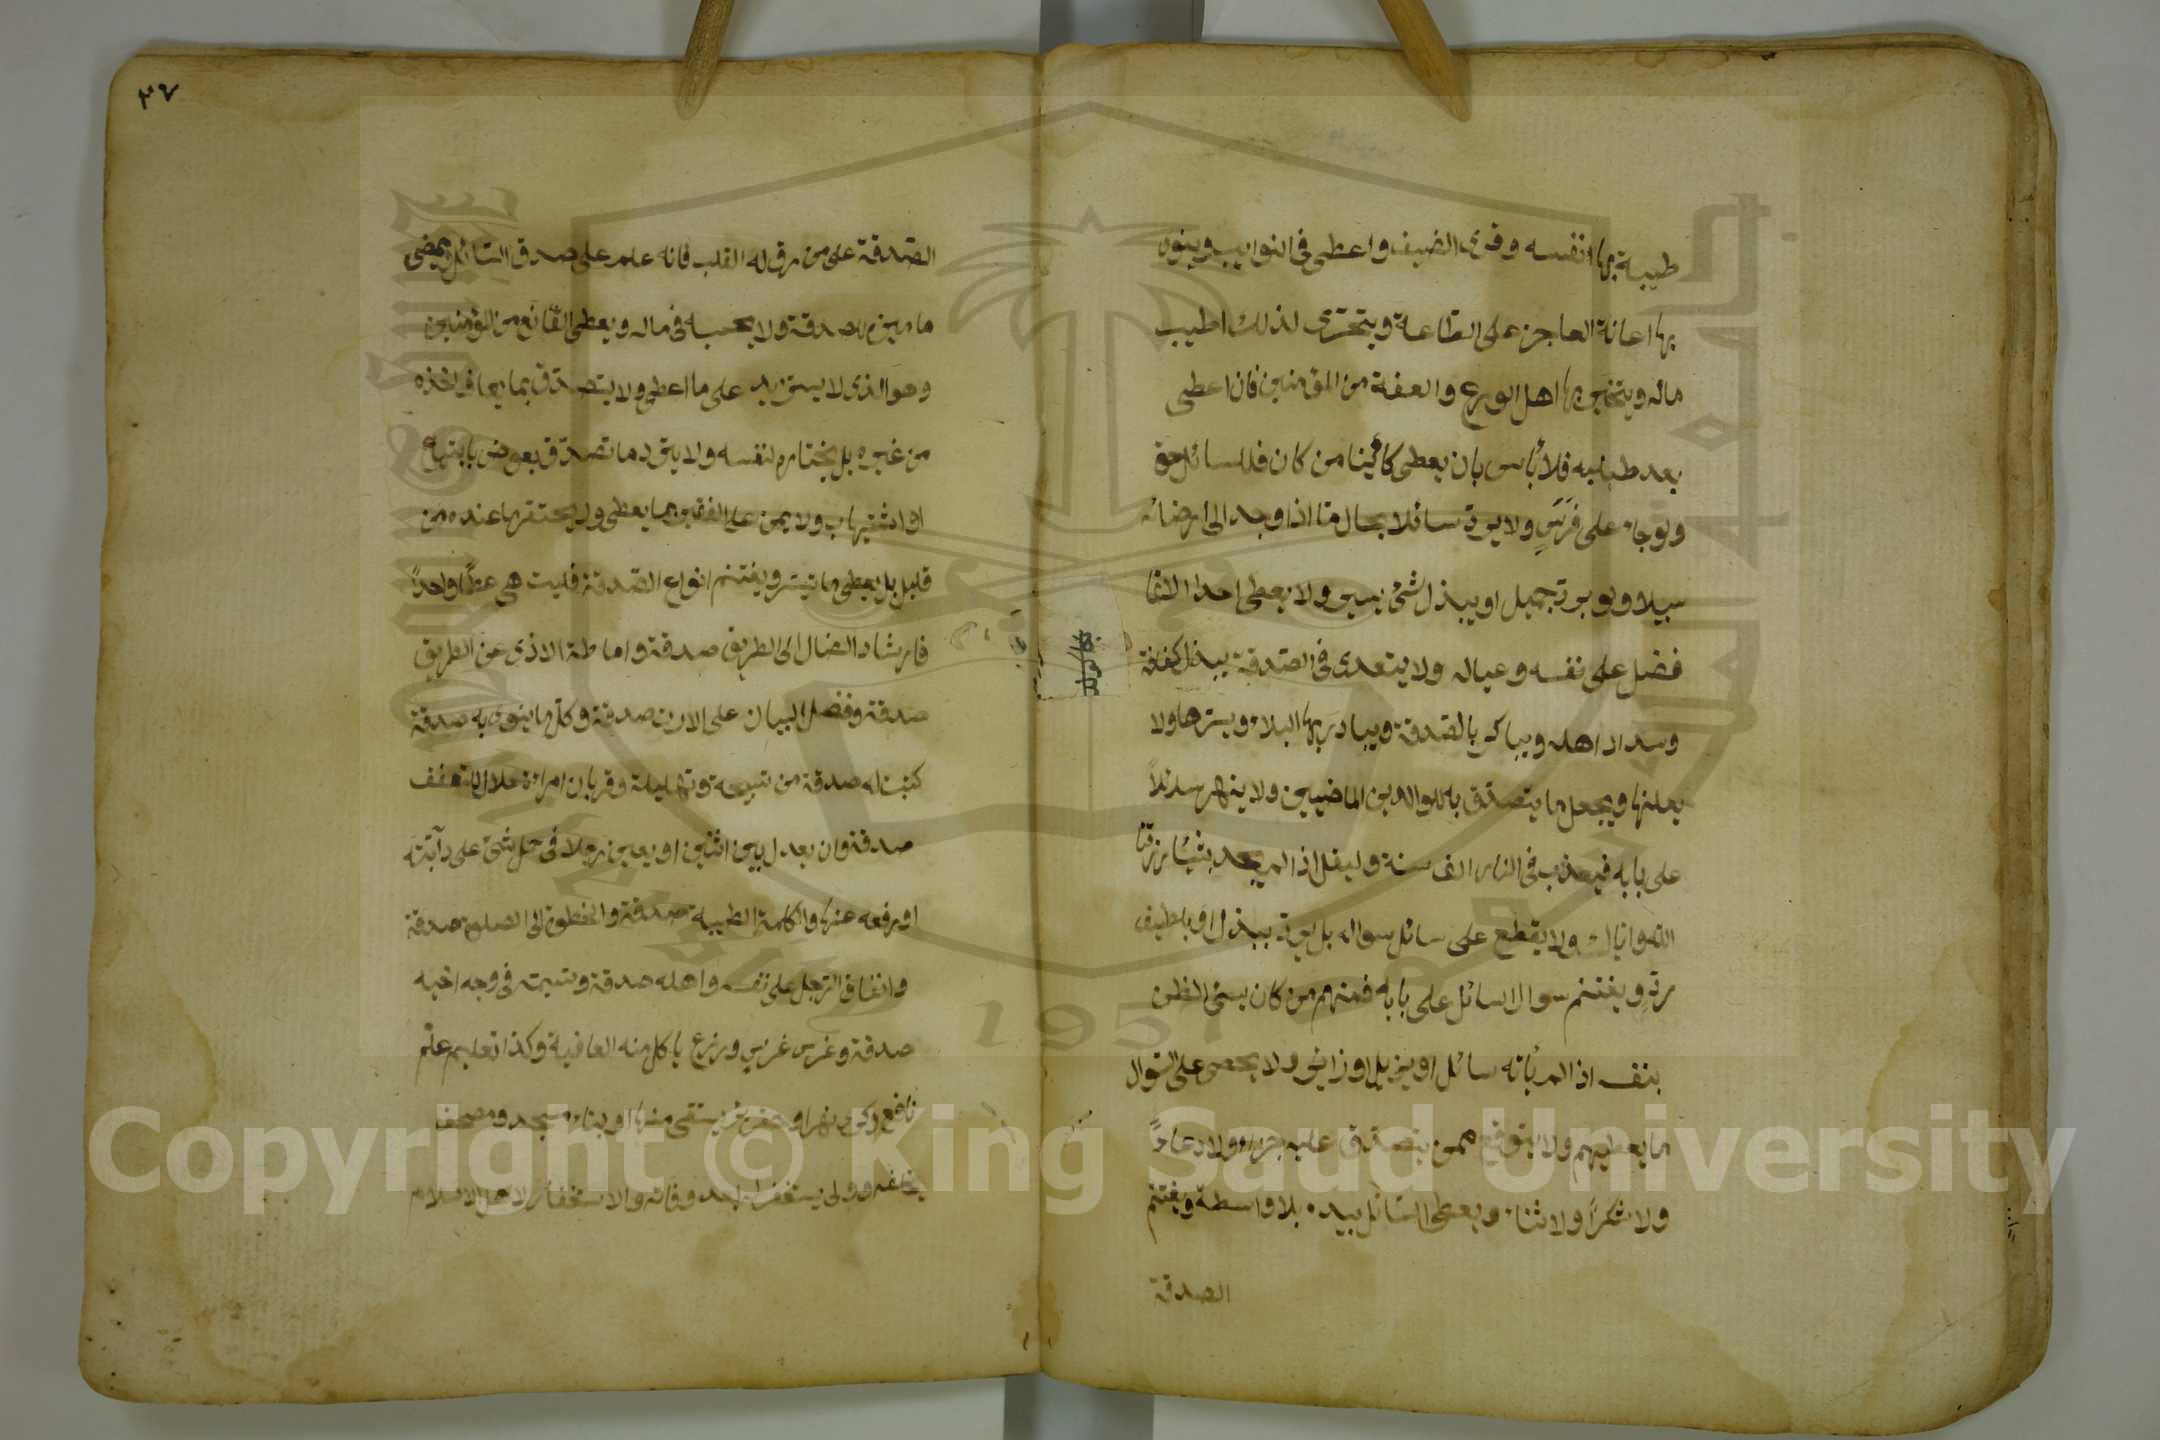 طيبة بها نفسه وقرى الضيف واعطى في النوايب وينوي
بها اعانة العاجز على الطاعة ويتحرى لذلك اطيب
ماله ويتخير بها اهل الورع والعفة من المؤمنين فان اعطى
بعد طلبه فلا بأس بان يعطى كائنا من كان فللسائل حق
ولو جاء على فرس ولا يرد سائلا بحال ما اذا وجد الى ارضائه
سبيلا ولو برد جميل او يبذل شئ يسير ولا يعطى احدا الا ما
فضل على نفسه وعياله ولا يتعدى في الصدقة يبذل كفافه
وسداد اهله ويباكر بالصدقة ويبادر بها البلاء ويسترها ولا
يعلنها ويجعل ما يتصدق به للوالدين الماضيين ولا ينهر سائلا
على بابه فيعذب في النار الف سنة وليقل اذا لم يجد شيئا رزقنا
الله واياك ولا يقطع على سائل سواله بل يرد ببذل او بلطيف
رد ويغتنم سوال السائل على بابه فمنهم من كان يسئ الظن
بنفسه اذا لم يأته سائل او نزيل او زائر ولا يحصى على السوال
ما يعطيهم ولا يتوقع ممن يتصدق عليه جزاء ولا دعاء
ولا شكرا ولا ثناء ويعطى السائل بيده بلا واسطة ويغتنم
الصدقة
٣٧
الصدقة على من رق له القلب فانه علم على صدق السائل ويمضى
ما ميزه لصدقة ولا يحسبه في ماله ويعطى القانع من المؤمنين
وهو الذى لا يستزيد على ما اعطى ولا يتصدق بما يعاف اخذه
من غيره بل يختاره لنفسه ولا يسترد ما تصدق بعوض بابتياع
او استيهاب ولا يمن على الفقير بما يعطى ولا يحتقر ما عنده من
قليل بل يعطى ما تيسر ويغتنم انواع الصدقة فليست هى عطا واحدا
فارشاد الضال الى الطريق صدقة واماطة الاذى عن الطريق
صدقة وفضل البيان على الارت صدقة وكل ما ينوى به صدقة
كتبت له صدقة من تسبيحة وتهليلة وقربان امراة حلال للتعفف
صدقة وان يعدل بين اثنين او يعين رجلا في حمل شئ على دآبته
او رفعه عنها والكلمة الطيبة صدقة والخطوة الى الصلوة صدقة
وانفاق الرجل على نفسه واهله صدقة وتبسمه في وجه اخيه
صدقة وغرس غرس وزرع ياكل منه العافية وكذا تعليم علم
نافع وكرى نهر او حفر بئر يستقى منها او بناء مسجد ومصحف
يخلفه وولد يستغفر له بعد وفاته والاستغفار لاهل الاسلام
Copyright © King Saud University
1957